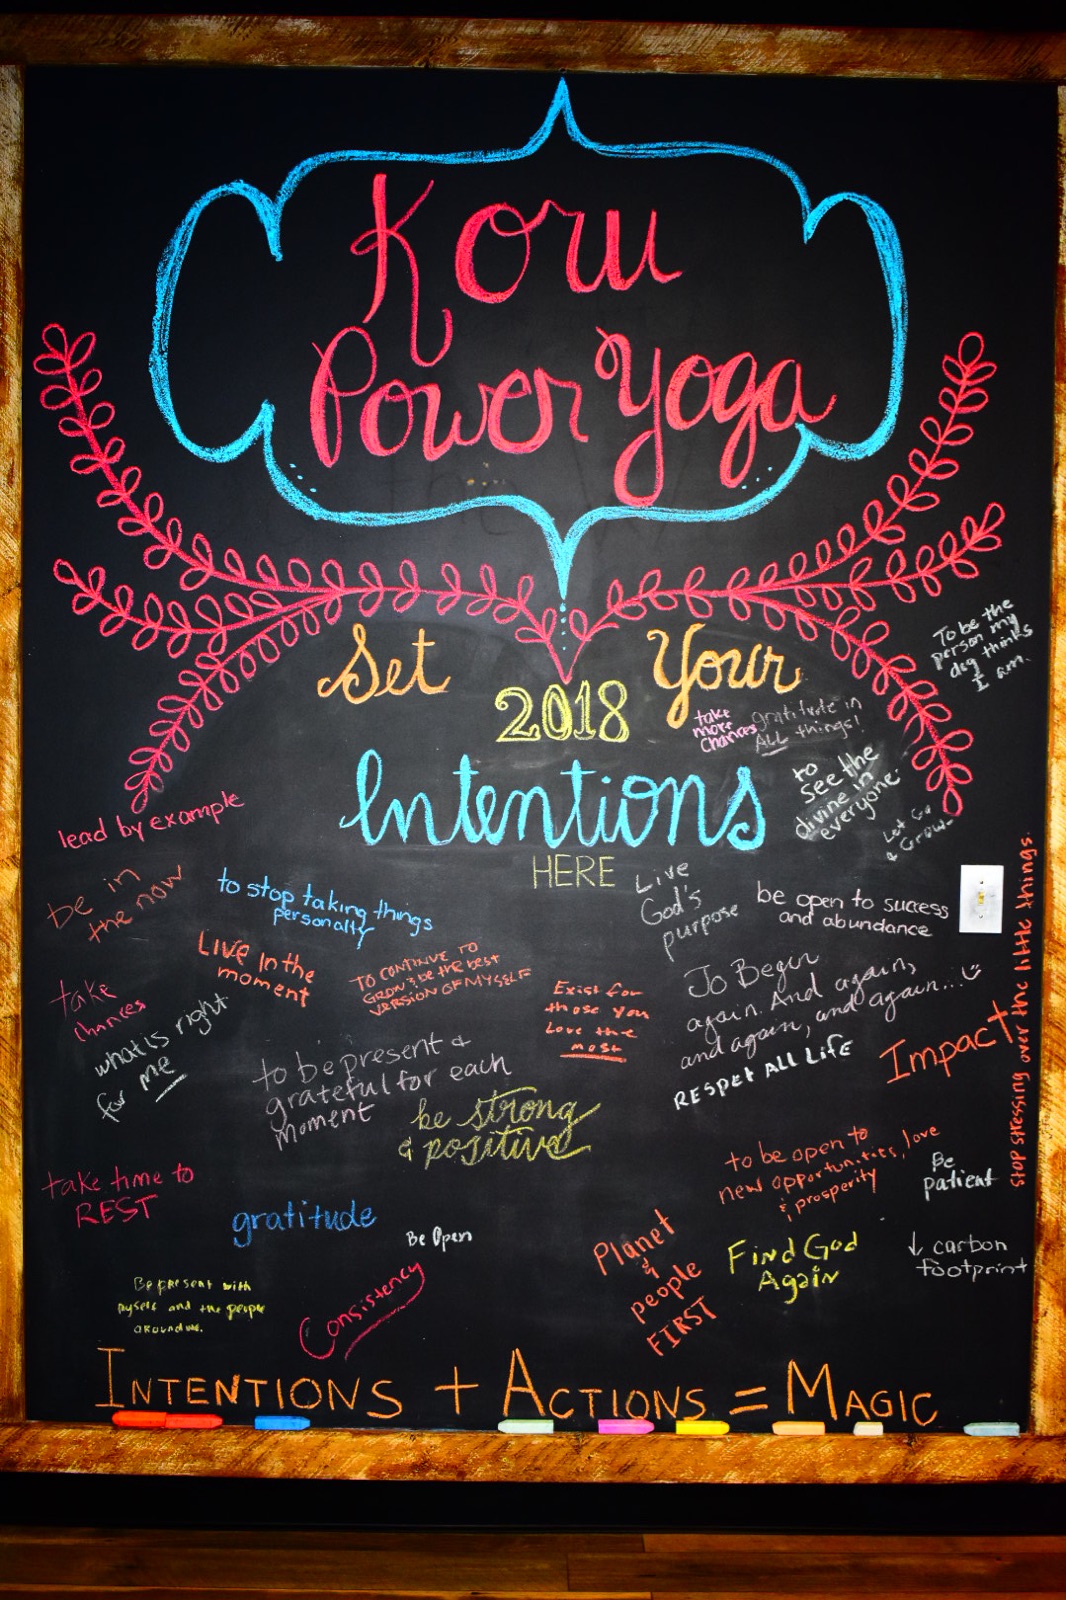 Koru
Power Yoga
Set Your
2018
Intentions
HERE
To be the
person my
dog thinks
I am.
take
more
chances
gratitude in
ALL things!
to
see the
divine in
everyone.
Let Go
& Grow
lead by example
be in
the now
to stop taking things
personally
Live
God's
purpose
be open to success
and abundance
stop stressing over the little things.
Live In the
moment
TO CONTINUE TO
GROW & be the best
VERSION OF MYSELF
take
chances
Exist for
those you
Love the
most
To Begin
again. And again,
and again, and again...
what is right
for me
to be present &
grateful for each
moment
RESPET ALL LIFE
Impact
be strong
& positive
to be open to
new opportunities, love
& prosperity
Be
patient
take time to
REST
gratitude
Be Open
Planet
&
people
FIRST
Find God
Again
↓ carbon
footprint
Be present with
myself and the people
around me.
Consistency
INTENTIONS + ACTIONS = MAGIC